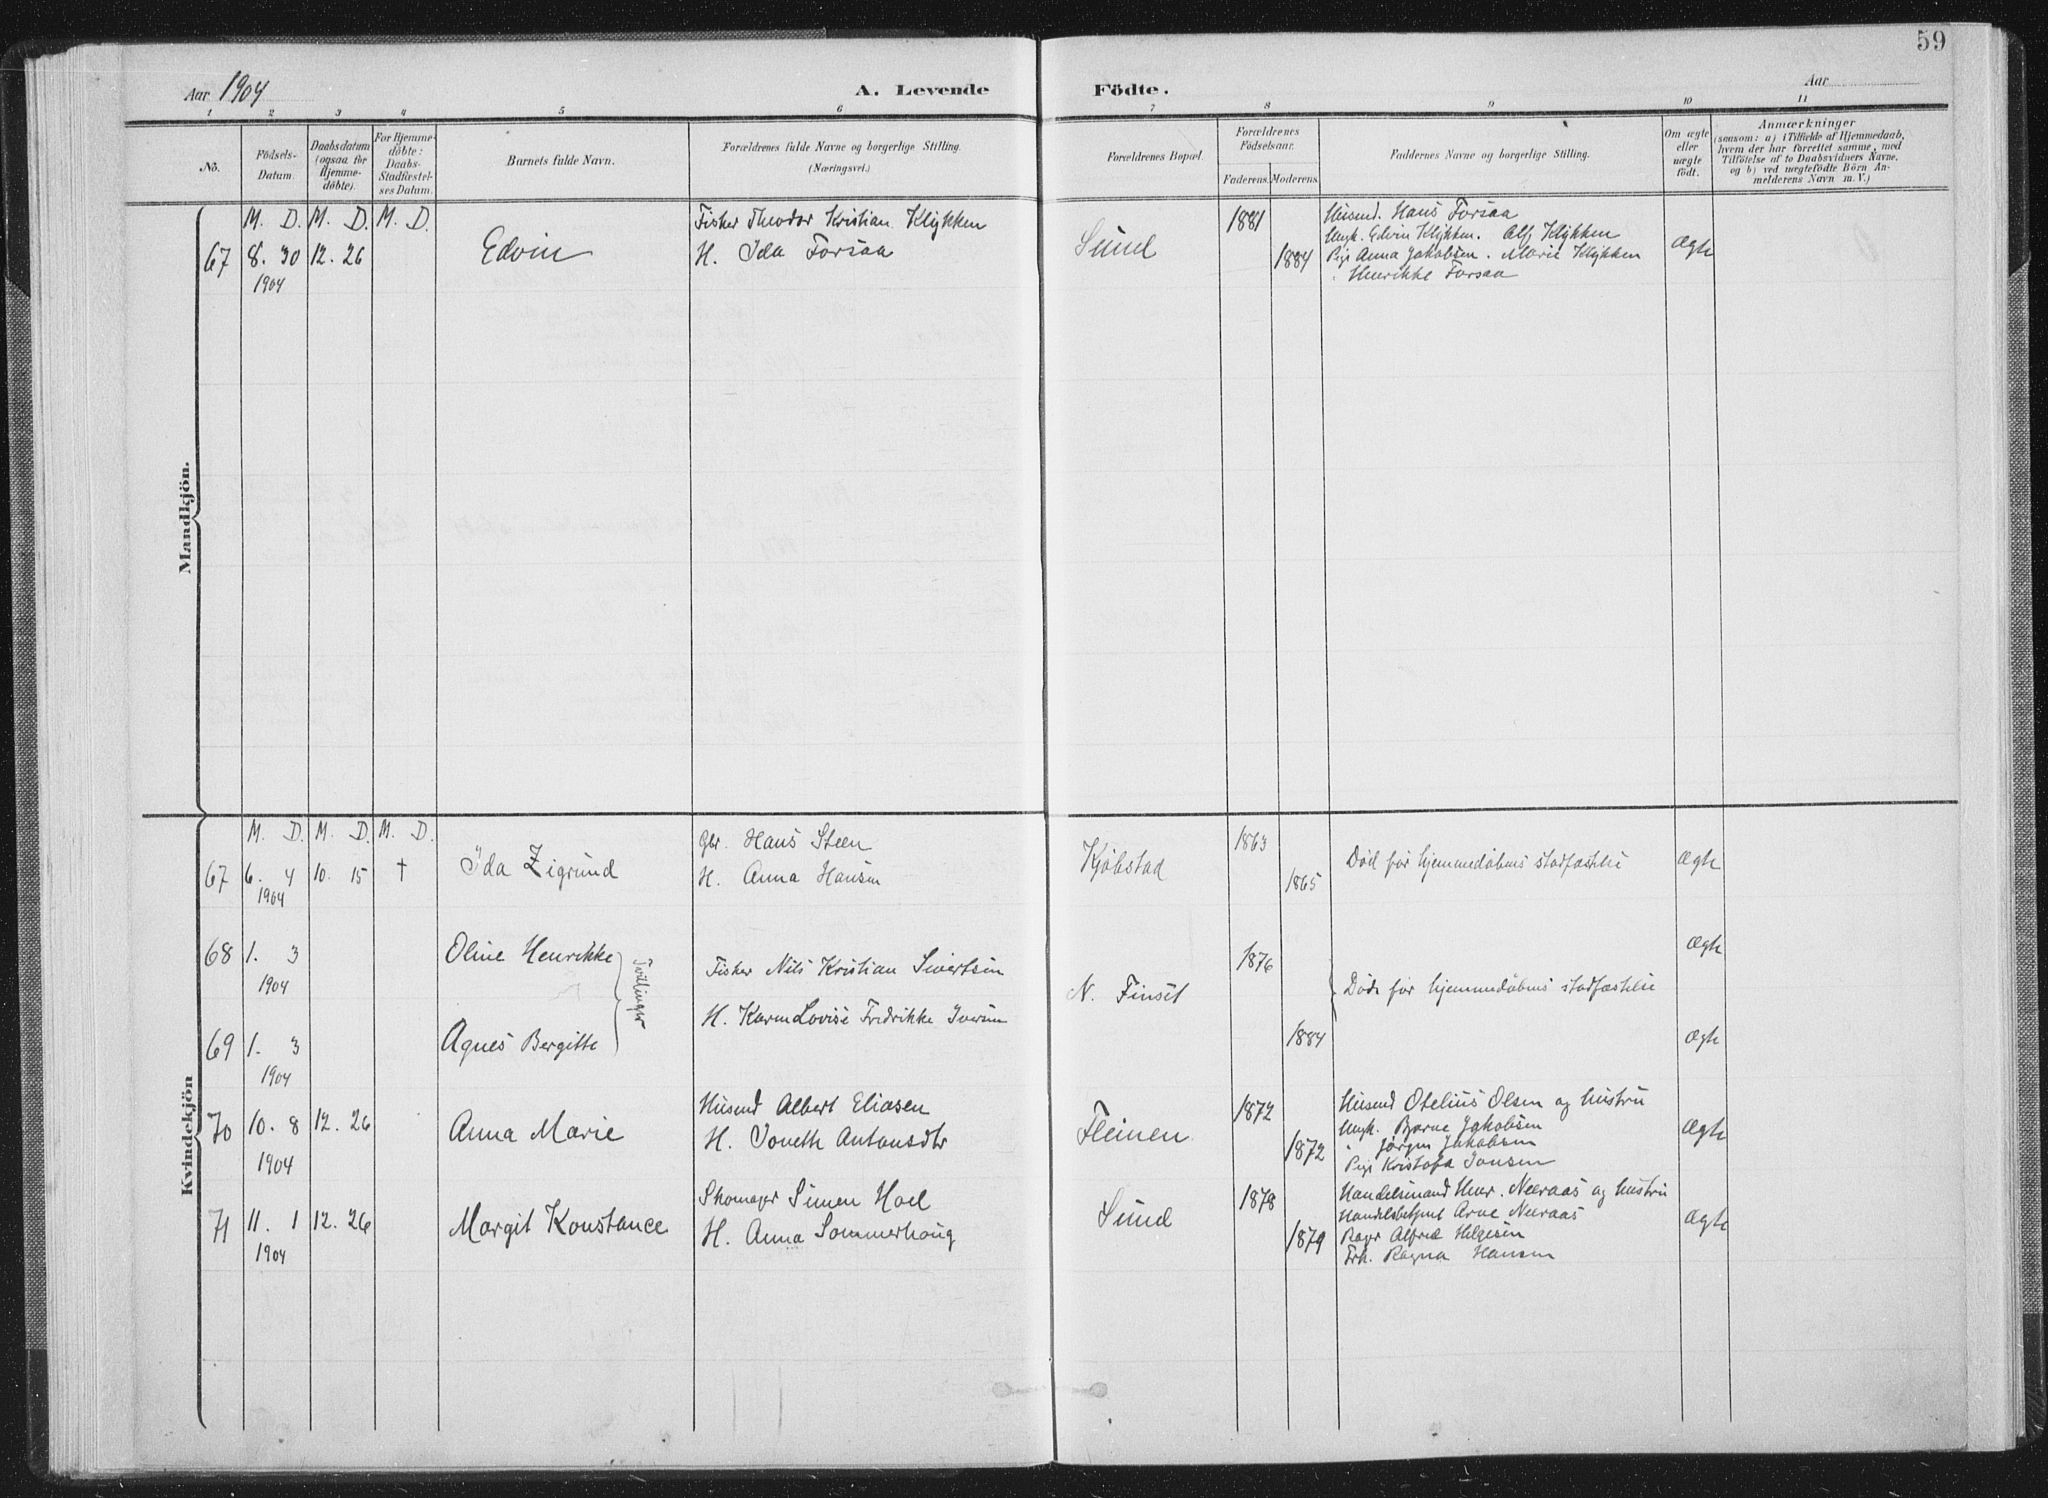 59
Aar 1904
A. Levende Födte.
Aar
1 2 3 4 5 6 7 8 9 10 11
No.
Födsels-Datum.
Daabsdatum (ogsaa for Hjemme-döbte).
For Hjemme-döbte: Daabs-Stadfæstel-ses Datum.
Barnets fulde Navn.
Forældrenes fulde Navne og borgerlige Stilling.
(Næringsvei.)
Forældrenes Bopæl.
Forældrenes Födselsaar.
Faderens. Moderens.
Faddernes Navne og borgerlige Stilling.
Om ægte eller uægte födt.
Anmærkninger
(saasom: a) i Tilfælde af Hjemmedaab,
hvem der har forrettet samme, med
Tilföielse af to Daabsvidners Navne,
og b) ved uægtefödte Börn An-
melderens Navn m. V.)
Mandkjön.
M. D. M. D. M. D.
67 8. 30 12. 26
1904
Edvin
Fisker Theodor Kristian Klykken
H. Ida Forsaa
Sund
1881
1884
Husmd. Hans Forsaa
Ungk. Edvin Klykken. Alf Klykken
Pige Anna Jakobsen. Marie Klykken
Henrikke Forsaa
Ægte
Kvindekjön
M. D. M. D. M. D.
67 6. 4 10. 15 †
1904
Ida Zigrund
Gbr. Hans Steen
H. Anna Hansen
Kjøbstad
1863
1865
Død før hjemmedåbens stadfæstelse
Ægte
68 1. 3
1904
Oline Henrikke
Tvillinger
Fisker Nils Kristian Sivertsen
N. Finset
1876
Døde før hjemmedåbens stadfæstelse
Ægte
69 1. 3
1904
Agnes Bergitte
H. Karen Lovise Fredrikke Iversen
1884
Ægte
70 10. 8 12. 26
1904
Anna Marie
Husmd Albert Eliasen
H. Joneth Antonsdtr
Fleinen
1872
1872
Husmd Otelius Olsen og hustru
Ungk. Bjarne Jakobsen
" Jørgen Jakobsen
Pige Kristofa Jonsen
Ægte
71 11. 1 12. 26
1904
Margit Konstance
Skomager Simen Hoel
H. Anna Sommerhaug
Sund
1878
1879
Handelsmand Henr. Neeraas og hustru
Handelsbetjent Arne Neeraas
Bager Alfred Helgesen
Frk. Ragna Hansen
Ægte